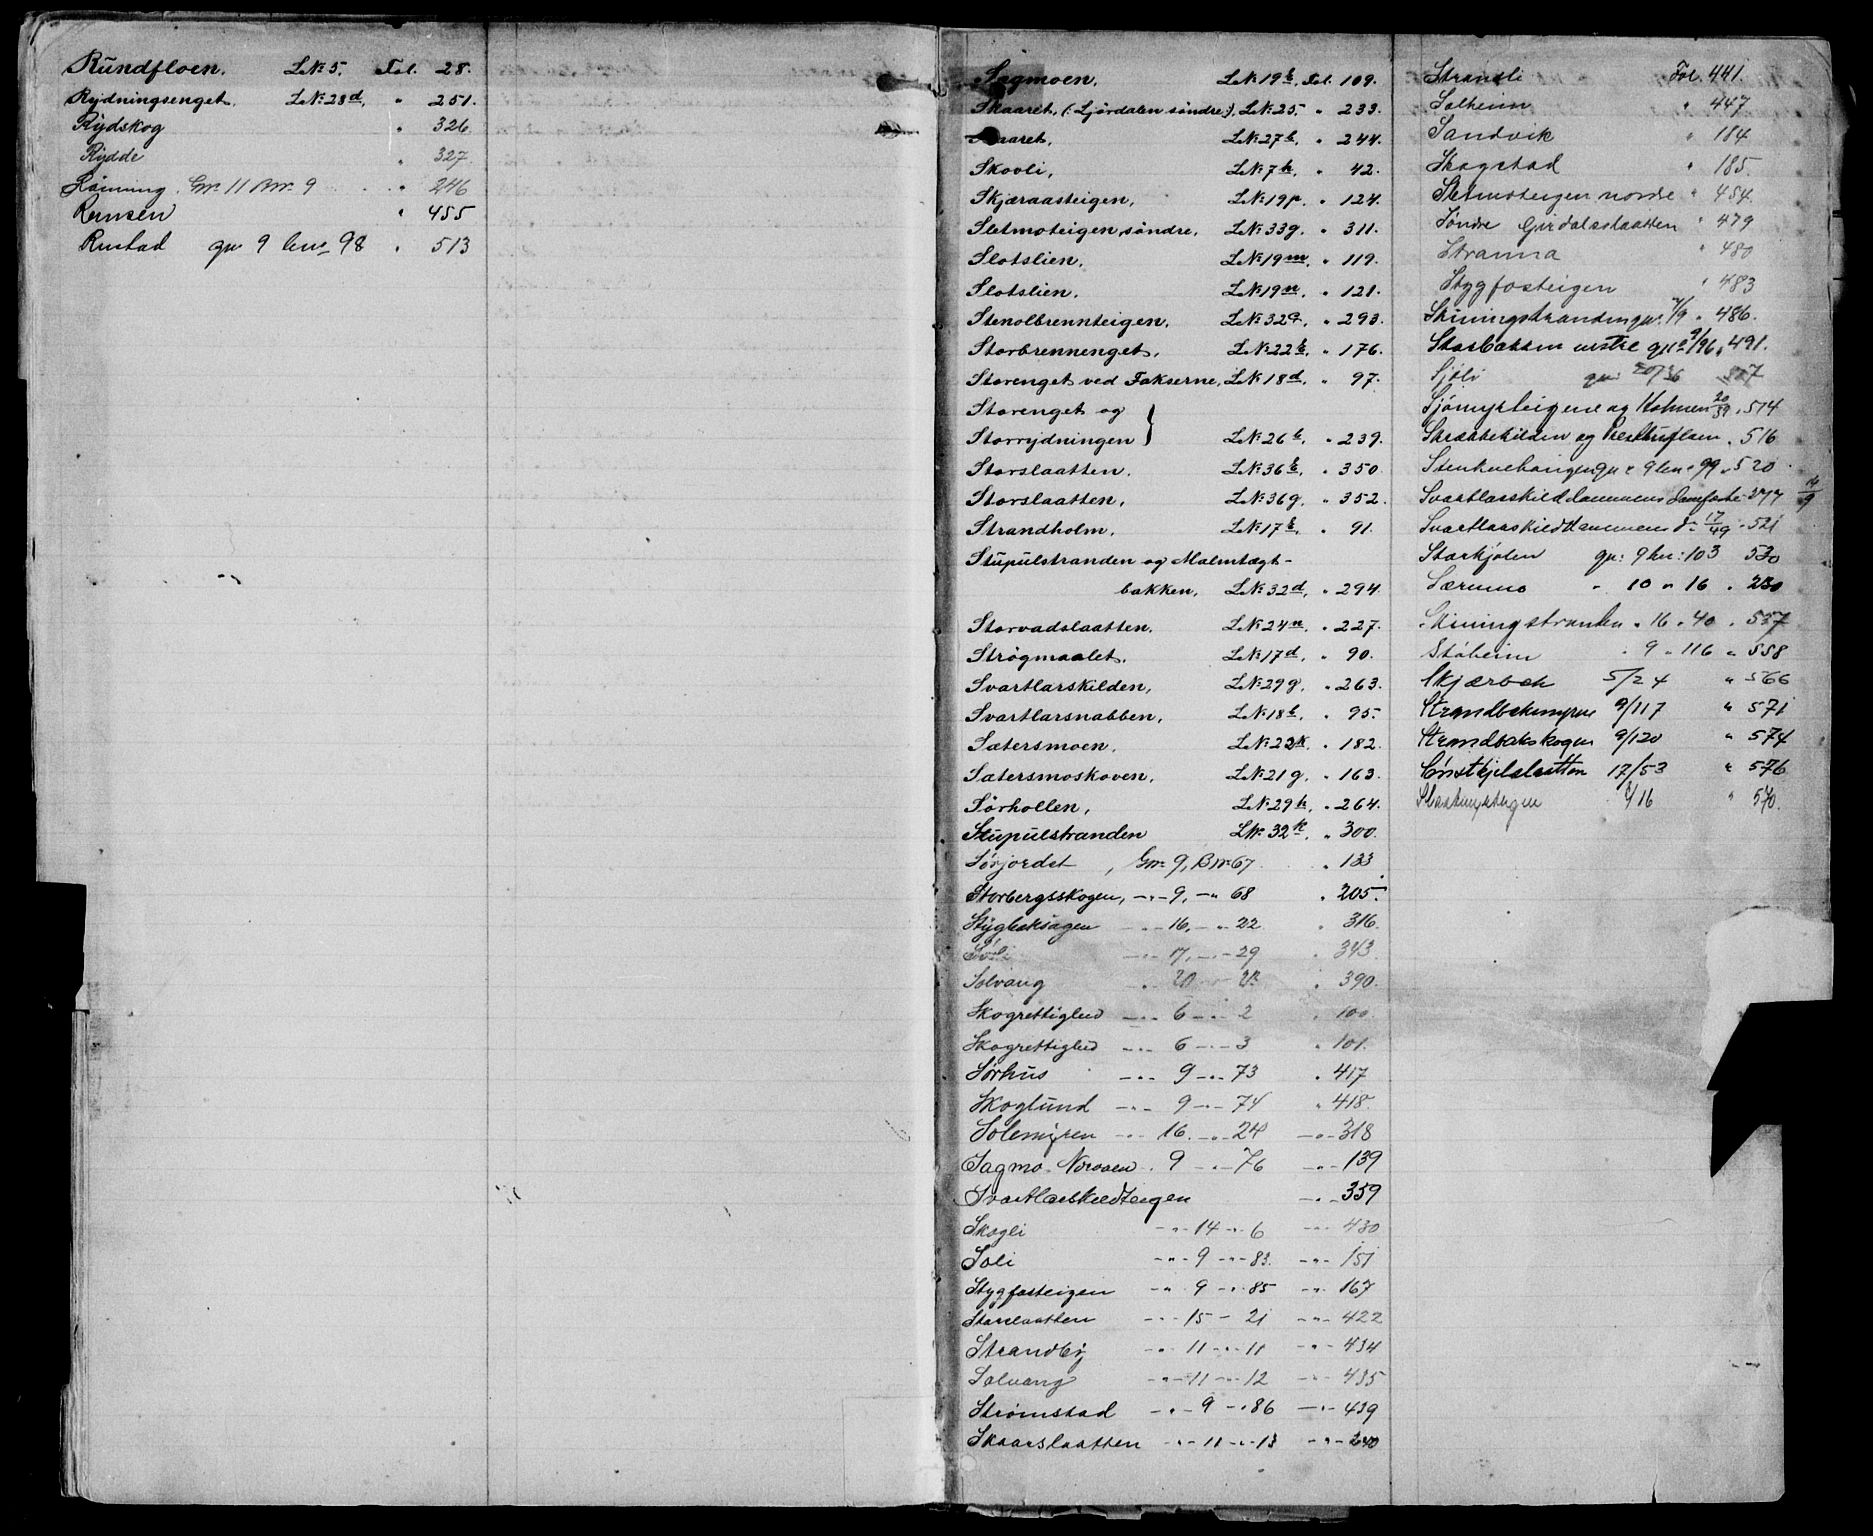 Rundfloen. L.№ 5. Fol. 28.
Rydningsenget. L.№ 28d. " 251.
Rydskog " 326
Rydde " 327
Rönning. Gnr. 11 Bnr. 9 " 246
Remsen " 455
Rustad gn 9 bn 98 " 513
Sagmoen. L.№ 19b. Fol. 109.
Skaaret, (: Ljördalen söndre:), L.№ 25. " 233.
L.№ 27b. " 244.
Skovli, L.№ 7h. " 42.
Skjæraasteigen, L.№ 19p. " 124.
Sletmoteigen, söndre, L.№ 33g. " 311.
Slotslien. L.№ 19m. " 119.
Slotslien. L.№ 19n. " 121.
Stenolbrennteigen. L.№ 32a. " 293.
Storbrennenget. L.№ 22b. " 176.
Storenget ved Fakserne, L.№ 18d. " 97.
Storenget og }
Storrydningen } L.№ 26b. " 239.
Storslaatten. L.№ 36b. " 350.
Storslaatten, L.№ 36g. " 352.
Strandholm. L.№ 17b. " 91.
Stupulstranden og Malmtægt-
bakken. L.№ 32d. " 294.
Storvadslaatten. L.№ 24n. " 227.
Strögmaalet. L.№ 17d. " 90.
Svartlarskilden, L.№ 29g. " 263.
Svartlarsnabben, L.№ 18b. " 95.
Sætersmoen. L.№ 22k. " 182.
Sætersmoskoven, L.№ 21g. " 163.
Sörhollen, L.№ 29h. " 264.
Stupulstranden L.№ 32k. " 300.
Sörjordet, Gnr. 9, Bnr. 67 " 133
Storbergsskogen, -"- 9, -" 68 " 205.
Stygbæksagen -"- 16, -" 22 " 316.
-"- 17, -"- 29 " 343.
Solvang " 20 " 390.
Skogrettighed -"- 6 -"- 2 " 100.
Skogrettighed -"- 6 -"- 3 " 101.
Sörhus -"- 9 -"- 73 " 417
Skoglund -"- 9 -"- 74 " 418.
Solemyren -"- 16. -"- 24 -"- 318
Sagmo Nordaen . 9 -"- 76 -"- 139
Svartlarskildteigen -"- 359
Skogli -"- 14 -"- 6 -"- 430
Soli -"- 9 -"- 83. -"- 151
Stygfosteigen -"- 9 -"- 85 -"- 167
Storslaatten -"- 15 - 21 -"- 422
Strandby -"- 11 -"- 11 -"- 434
Solvang -"- 11 -"- 12 -"- 435
Strömstad -"- 9 -"- 86 -"- 439
Skaarslaatten -"- 11 -"- 13 -"- 240
Strandli Fol. 441.
Solheim " 447
Sandvik " 184
Skogstad " 185.
Sletmoteigen nordre " 454.
Söndre Girdalsslaatten " 479
Stranna " 480
Stygfosteigen " 483
" 486.
Storbækken vestre gn 9/96 " 491.
Sjöli gn: 20/36
Sjömyrteigene og Holmen 20/39 " 514
Skrabbekilden og " 516
gn: 9 bn: 99 " 520
Svartlarskilddammens 14/9
Svartlarskilddammens 17/49 " 521
Storkjölen gn: 9 bn: 103 530
Særumo " 10 " 16 " 230
Skiningstranden " 16 " 40 " 537
Stöheim " 9 " 116 " 558
Skjærbek 5/24 " 566
Strandbækmyrene 9/117 " 571
Strandbækskogen 9/120 " 574
17/53 " 576
" 570.